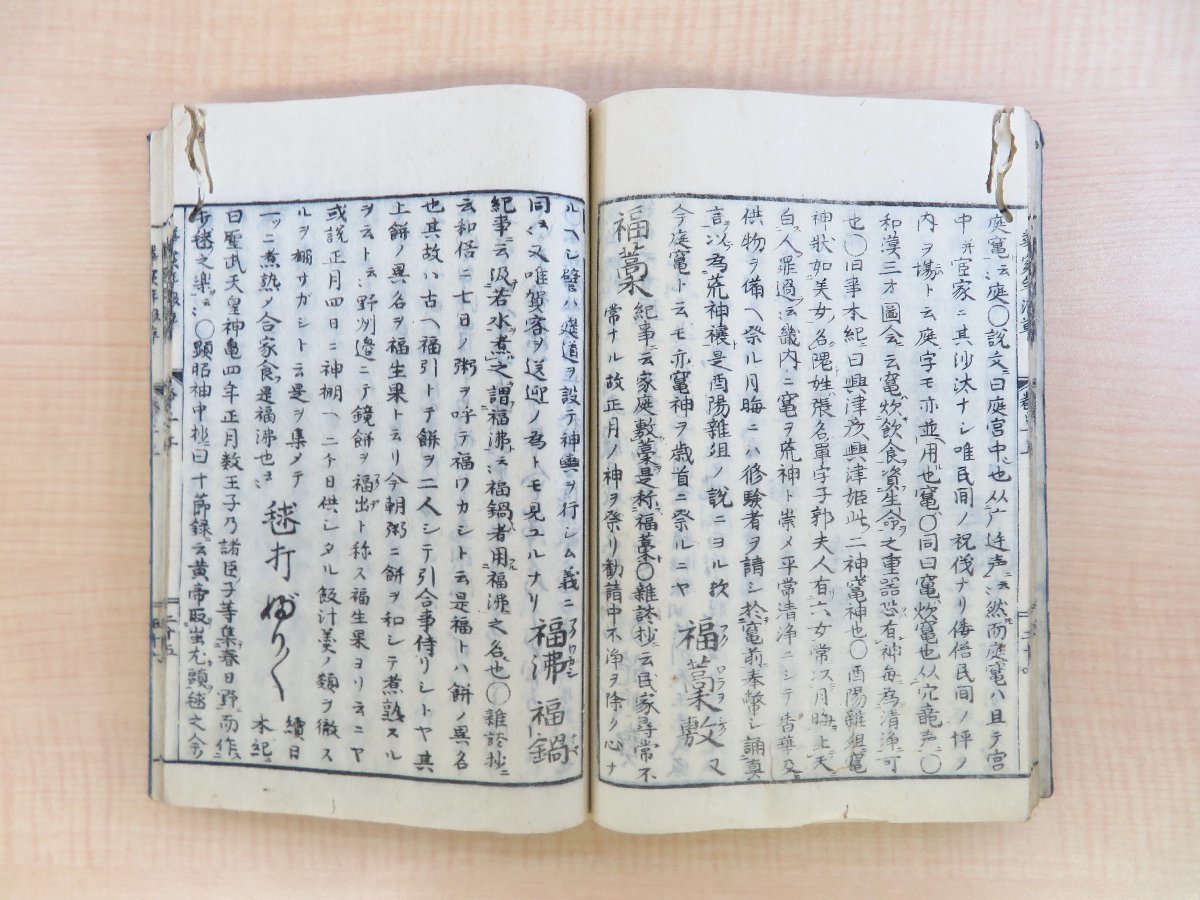 庭竈云庭〇説文曰庭宮中也从广廷声云然而庭竈ハ且テ宮
中并官家ニ其沙汰ナシ唯民間ノ祝伐ナリ倭俗民間ノ坪ノ
内ヲ場ト云庭字モ亦並用也竈〇同曰竈炊竈也从穴黽声〇
和漢三才圖会云竈炊飲食資生命之重器恐有神毎為清浄可
也〇旧事本紀曰興津彦興津姫此二神竈神也〇酉陽雑俎竈
神状如美女名隗姓張名單字子郭夫人有六女常以月晦上天
白人罪過云畿内ニ竈ヲ荒神ト崇メ平常清浄ニシテ香華及
供物ヲ備ヘ祭ル月晦ニハ修験者ヲ請シ於竈前奉幣シ誦真
言以為荒神禳是酉陽雑俎ノ説ニヨル欤
今庭竈ト云モ亦竈神ヲ歳首ニ祭ルニヤ 福藁敷 又
福藁 紀事云家庭敷藁是称福藁〇雑談抄云民家尋常不
常ナル故正月ノ神ヲ祭リ勧請中不浄ヲ除クノ心ナ
ルヘシ譬ハ莚道ヲ設テ神輿ヲ行シム義ニ
同云又唯賀客ヲ送迎ノ為トモ見ユルナリ 福沸 福鍋
紀事云汲若水煮之謂福沸云福鍋者用福沸之名也〇雑談抄
云和俗ニ七日ノ粥ヲ呼テ福ワカシト云是福トハ餅ノ異名
也其故ハ古ヘ福引トテ餅ヲ二人シテ引合事侍リシトヤ其
上餅ノ異名ヲ福生果ト云リ今朝粥ニ餅ヲ和シテ煮熟スル
ヲ云ト云野州邊ニテ鏡餅ヲ福出ト称ス福生果ヨリ云ニヤ
或説正月四日ニ神棚ヘ三ケ日供シタル飯汁羹ノ類ヲ徹ス
ルヲ棚サガシト云是ヲ集メテ
一ツニ煮熟メ合家食是福沸也云 毬打 ぶり〱 續日本紀
曰聖武天皇神亀四年正月数王子乃諸臣子等集春日野而作
打毬之樂云〇顕昭袖中抄曰十節録云黄帝取蚩尤頭毬之今